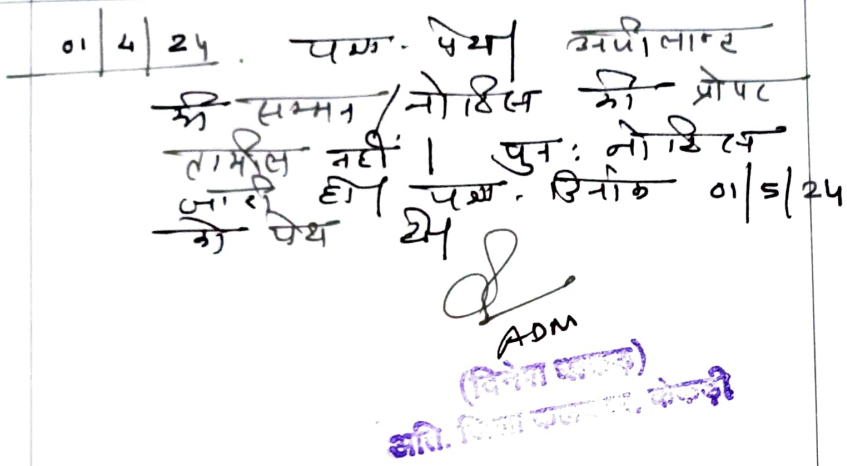 01/4/24. पत्रा. पेश। अपीलान्ट
की सम्मन/नोटिस की प्रोपर
तामील नहीं। पुन: नोटिस
जारी हो। पत्रा. दिनांक 01/5/24
को पेश हो।
ADM
अति. जिला कलक्टर, केकड़ी